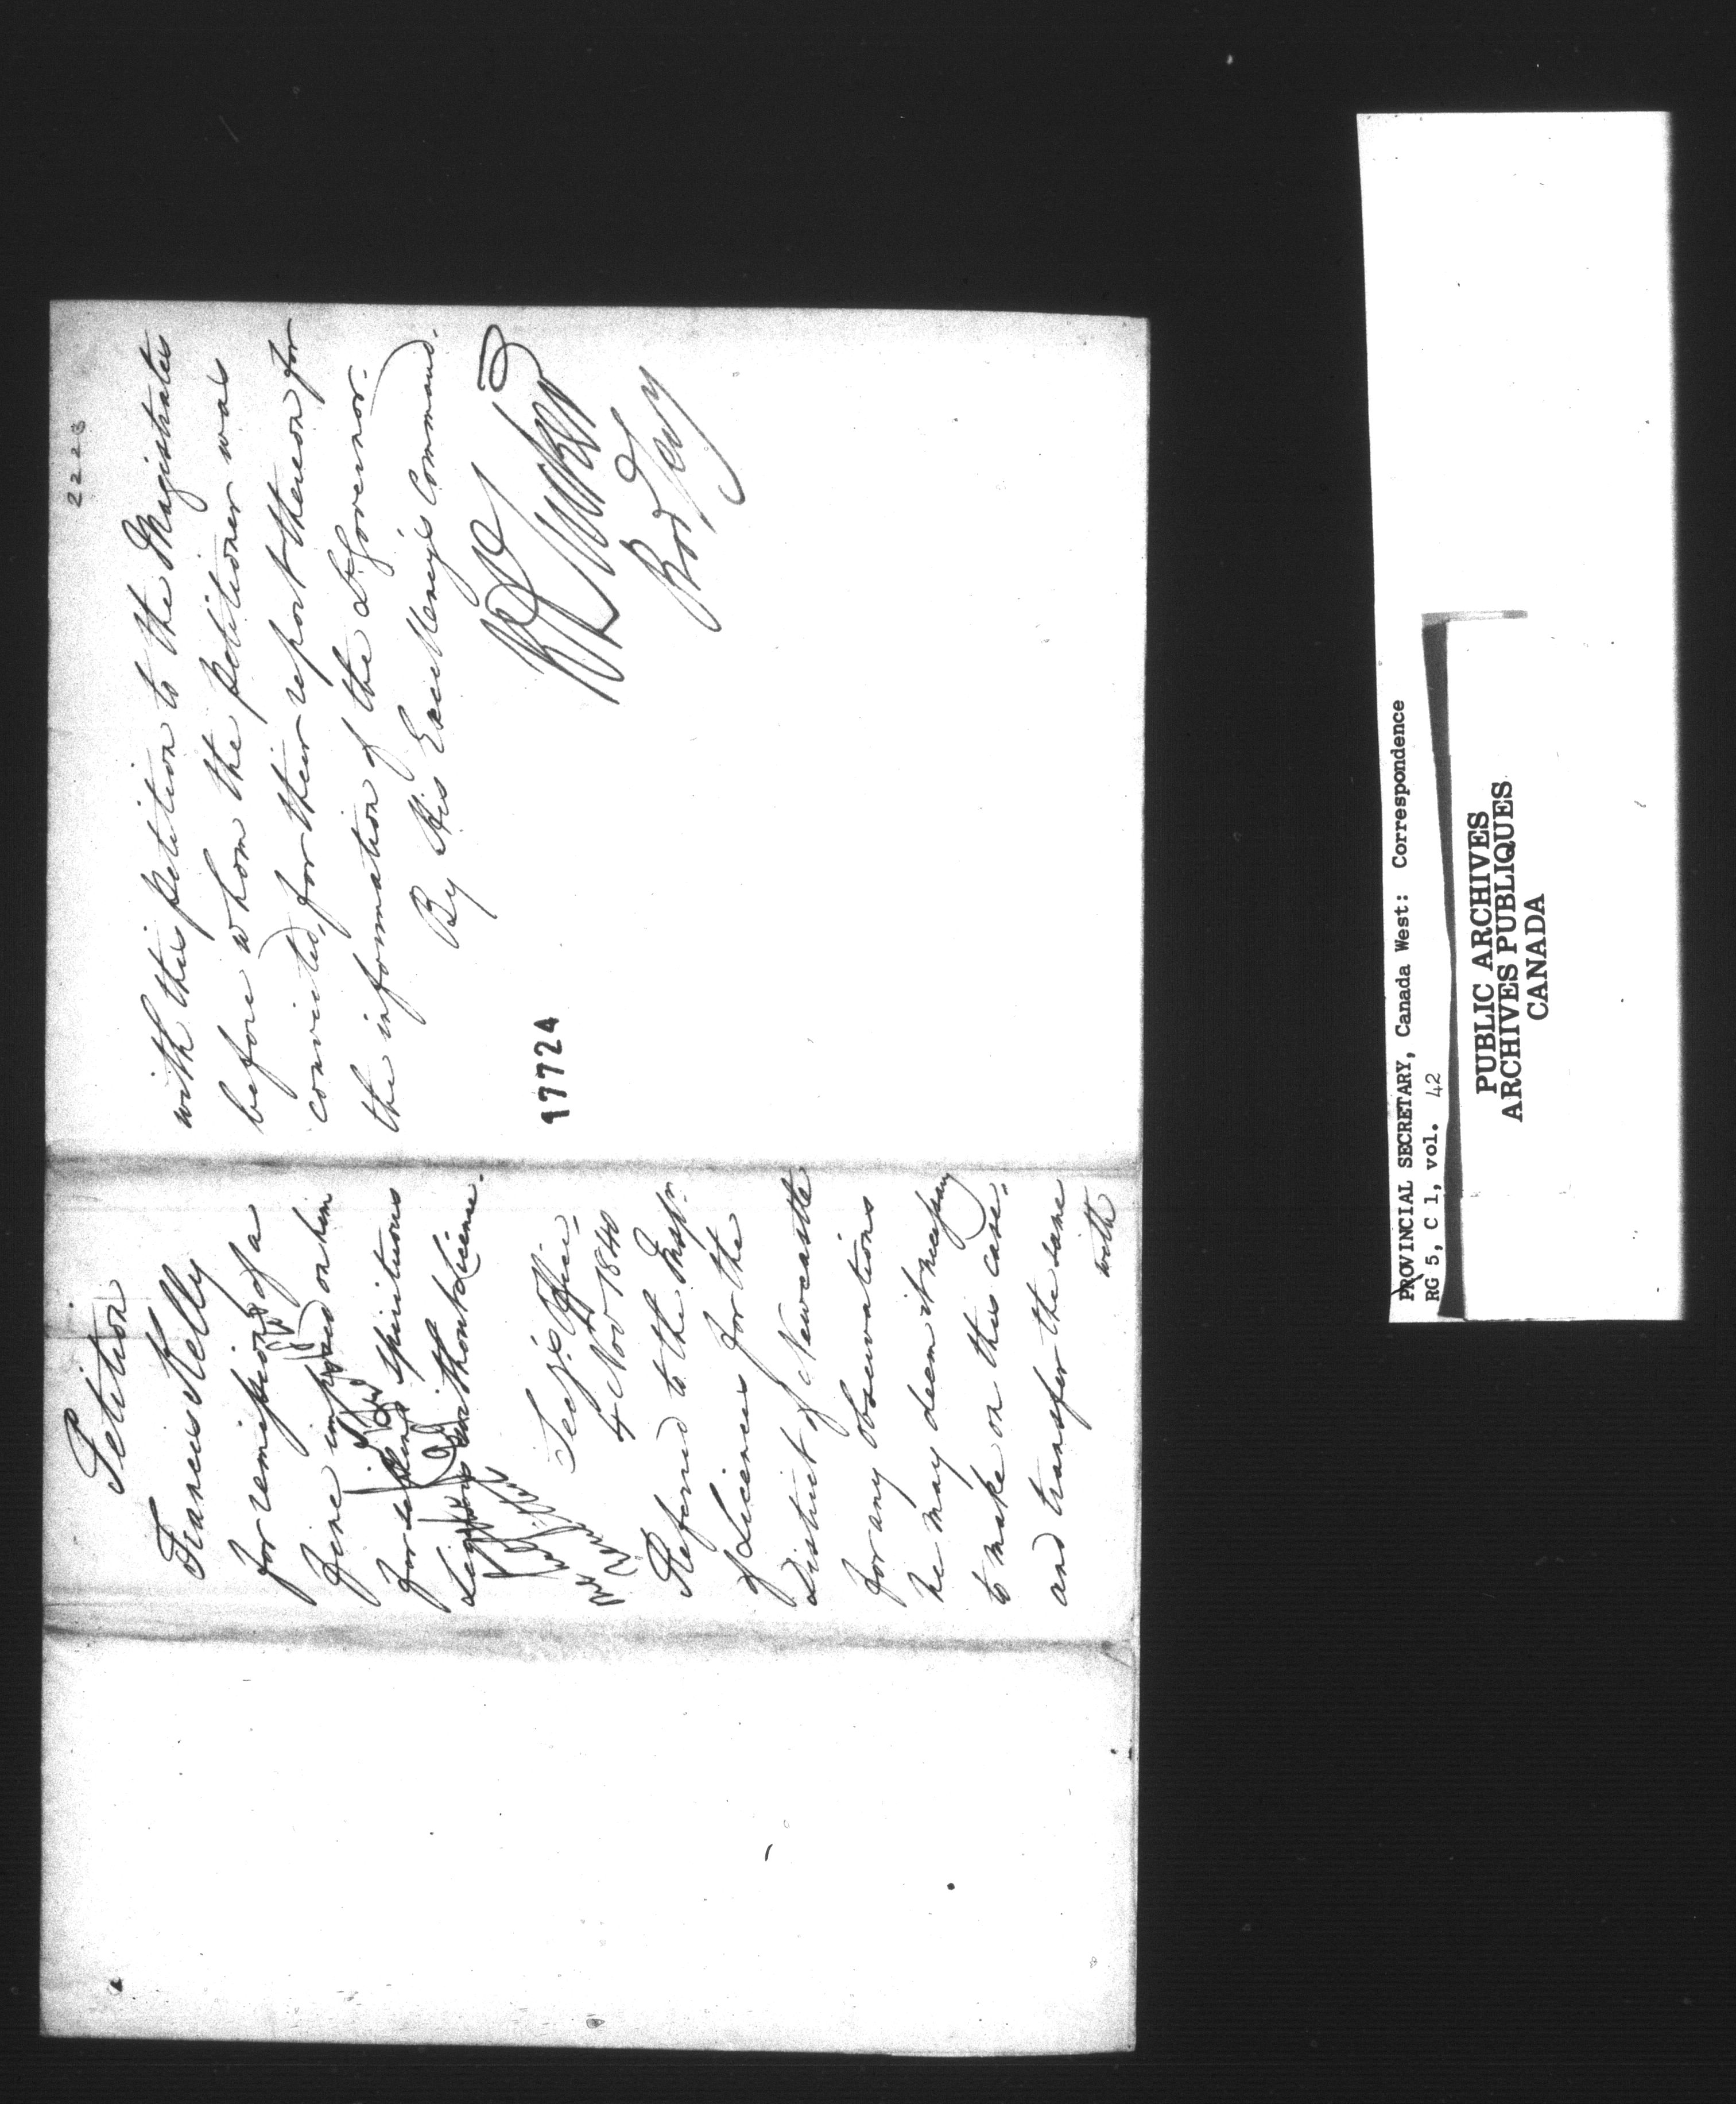 Petition
Francis Kelly
for remission of a
fine imposed on him
for selling spirituous
Liquors without License.
Secy's Office
4 Nov 1840
Referred to the Inspr.
of Licences for the
District of Newcastle
for any observations
he may deem it necessary
to make on this case,
and transfer the same
with
2223
with this petition to the Magistrates
before whom the petitioner was
convicted, for their report thereon for
the information of the Lt Governor.
By His Excellency's Command.
R A Tucker
Pro Secy
97724
PROVINCIAL SECRETARY, Canada West: Correspondence
RG 5, C 1, vol. 42
PUBLIC ARCHIVES
ARCHIVES PUBLIQUES
CANADA